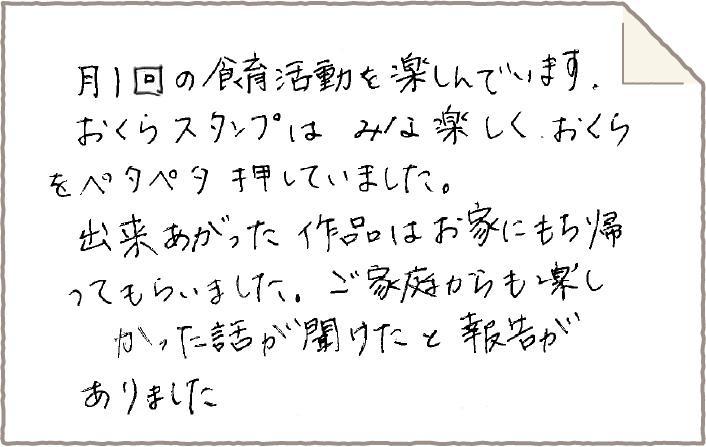 月1回の食育活動を楽しんでいます.
おくらスタンプは みな楽しく.おくら
をペタペタ押していました。
出来あがった作品はお家にもち帰
ってもらいました。ご家庭からも楽し
かった話が聞けたと報告が
ありました